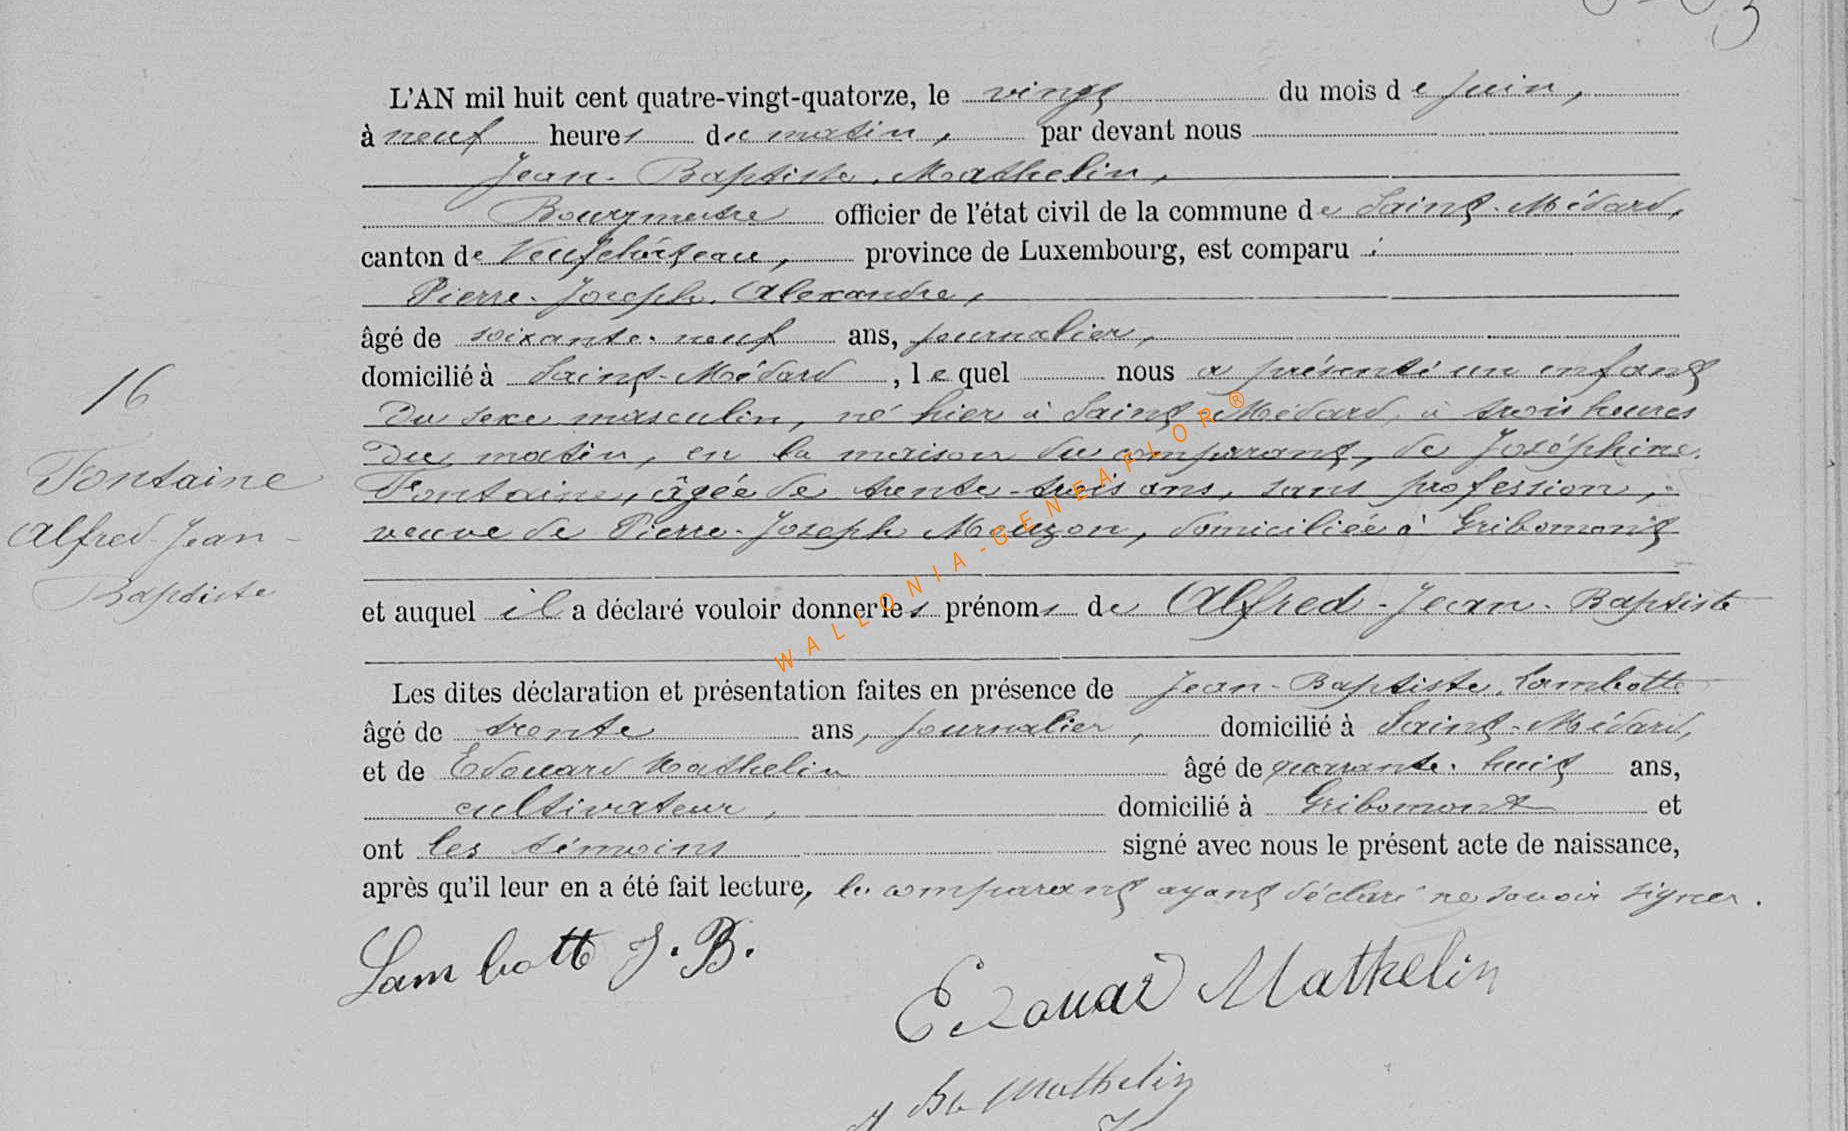 L'AN mil huit cent quatre-vingt-quatorze, le vingt du mois de juin,
à neuf heures du matin, par devant nous
Jean-Baptiste Mathelin,
Bourgmestre officier de l'état civil de la commune de Saint-Médard,
canton de Neufchâteau, province de Luxembourg, est comparu :
Pierre-Joseph Alexandre,
âgé de soixante-neuf ans, journalier,
domicilié à Saint-Médard, lequel nous a présenté un enfant
16
du sexe masculin, né hier à Saint-Médard, à trois heures
du matin, en la maison du comparant, de Joséphine
Fontaine, âgée de trente-trois ans, sans profession,
veuve de Pierre-Joseph Mouzon, domiciliée à Gribomont
Fontaine
Alfred-Jean-
Baptiste
et auquel il a déclaré vouloir donner les prénoms de Alfred-Jean-Baptiste
Les dites déclaration et présentation faites en présence de Jean-Baptiste Lambotte
âgé de trente ans, journalier, domicilié à Saint-Médard,
et de Edouard Mathelin âgé de quarante-huit ans,
cultivateur, domicilié à Gribomont et
ont les témoins signé avec nous le présent acte de naissance,
après qu'il leur en a été fait lecture, le comparant ayant déclaré ne savoir signer.
Lambott J.B.
Edouard Mathelin
J Bte Mathelin
WALLONIA-GENEAFLOR®